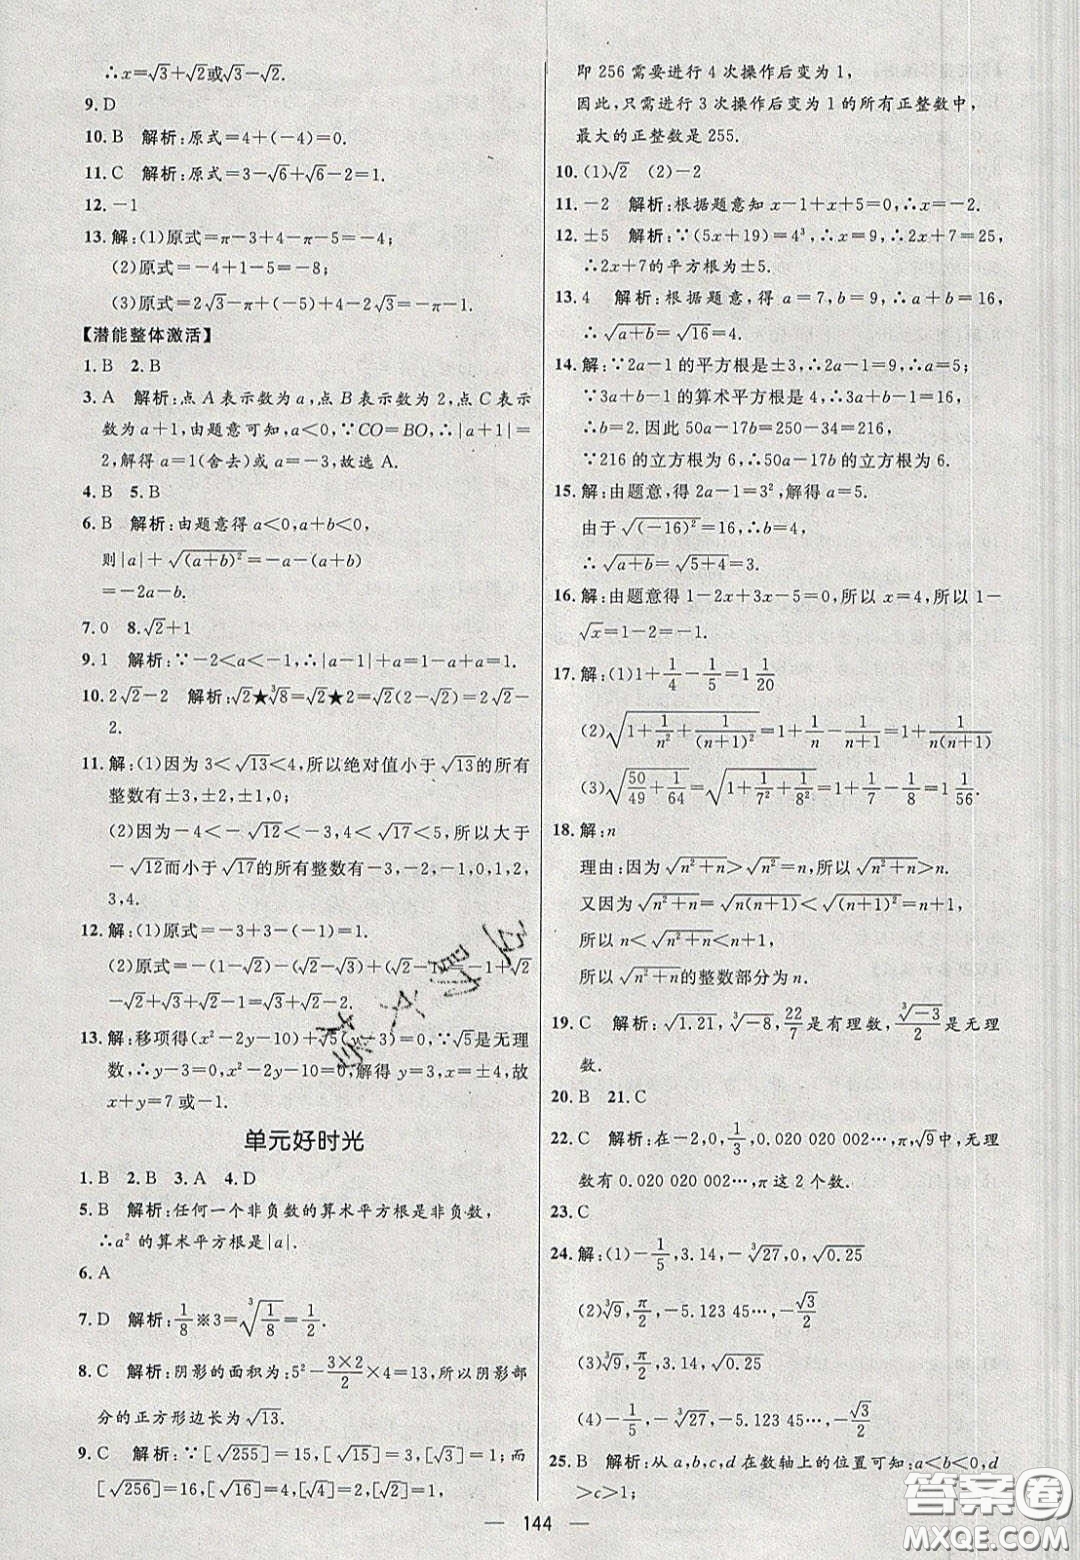 ∴x=√3+√2或√3-√2.
9. D
10. B 解析:原式=4+(-4)=0.
11. C 解析:原式=3-√6+√6-2=1.
12. -1
13. 解:(1)原式=π-3+4-π-5=-4;
(2)原式=-4+1-5=-8;
(3)原式=2√3-π+(-5)+4-2√3=-π-1.
【潜能整体激活】
1. B 2. B
3. A 解析:点A表示数为a,点B表示数为2,点C表示
数为a+1,由题意可知,a<0,∵CO=BO,∴|a+1|=
2,解得a=1(舍去)或a=-3,故选A.
4. B 5. B
6. B 解析:由题意得a<0,a+b<0,
则|a|+√(a+b)²=-a-(a+b)
=-2a-b.
7. 0 8. √2+1
9. 1 解析:∵-2<a<-1,∴|a-1|+a=1-a+a=1.
10. 2√2-2 解析:√2★∛8=√2★2=√2(2-√2)=2√2-
2.
11. 解:(1)因为3<√13<4,所以绝对值小于√13的所有
整数有±3,±2,±1,0;
(2)因为-4<-√12<-3,4<√17<5,所以大于
-√12而小于√17的所有整数有-3,-2,-1,0,1,2,
3,4.
12. 解:(1)原式=-3+3-(-1)=1.
(2)原式=-(1-√2)-(√2-√3)-(√3-2)=-1+√2
-√2+√3-√3+2=1.
13. 解:移项得(x²-2y-10)+√5(y-3)=0,∵√5是无理
数,∴y-3=0,x²-2y-10=0,解得y=3,x=±4,故
x+y=7或-1.
单元好时光
1. B 2. B 3. A 4. D
5. B 解析:任何一个非负数的算术平方根是非负数,
∴a²的算术平方根是|a|.
6. A
7. D 解析:1/8※3=∛(1/8)=1/2.
8. C 解析:阴影的面积为:5²-(3×2)/2×4=13,所以阴影部
分的正方形边长为√13.
9. C 解析:∵[√255]=15,[√15]=3,[√3]=1;而
[√256]=16,[√16]=4,[√4]=2,[√2]=1,
即256需要进行4次操作后变为1,
因此,只需进行3次操作后变为1的所有正整数中,
最大的正整数是255.
10. (1)√2 (2)-2
11. -2 解析:根据题意知x-1+x+5=0,∴x=-2.
12. ±5 解析:∵(5x+19)=4³,∴x=9,∴2x+7=25,
∴2x+7的平方根为±5.
13. 4 解析:根据题意,得a=7,b=9,∴a+b=16,
∴√(a+b)=√16=4.
14. 解:∵2a-1的平方根是±3,∴2a-1=9,∴a=5;
∵3a+b-1的算术平方根是4,∴3a+b-1=16,
∴b=2.因此50a-17b=250-34=216,
∵216的立方根为6,∴50a-17b的立方根为6.
15. 解:由题意,得2a-1=3²,解得a=5.
由于√(-16)²=16,∴b=4,
∴√(a+b)=√(5+4)=3.
16. 解:由题意得1-2x+3x-5=0,所以x=4,所以1-
√x=1-2=-1.
17. 解:(1)1+1/4-1/5=1 1/20
(2)√(1+1/n²+1/(n+1)²)=1+1/n-1/(n+1)=1+1/(n(n+1))
(3)√(50/49+1/64)=√(1+1/7²+1/8²)=1+1/7-1/8=1 1/56.
18. 解:n
理由:因为√(n²+n)>√n²=n,所以√(n²+n)>n.
又因为√(n²+n)=√(n(n+1))<√(n+1)²=n+1,
所以n<√(n²+n)<n+1,
所以√(n²+n)的整数部分为n.
19. C 解析:√1.21,∛-8,22/7是有理数,∛-3/2是无理
数.
20. B 21. C
22. C 解析:在-2,0,1/3,0.020 020 002…,π,√9中,无理
数有0.020 020 002…,π这2个数.
23. C
24. 解:(1)-1/5,3.14,-∛27,0,√0.25
(2)∛9,π/2,-5.123 45…,-√3/2
(3)∛9,π/2,3.14,√0.25
(4)-1/5,-∛27,-5.123 45…,-√3/2
25. B 解析:从a,b,c,d在数轴上的位置可知:a<b<0,d
>c>1;
— 144 —
答案圈
MXQE.COM